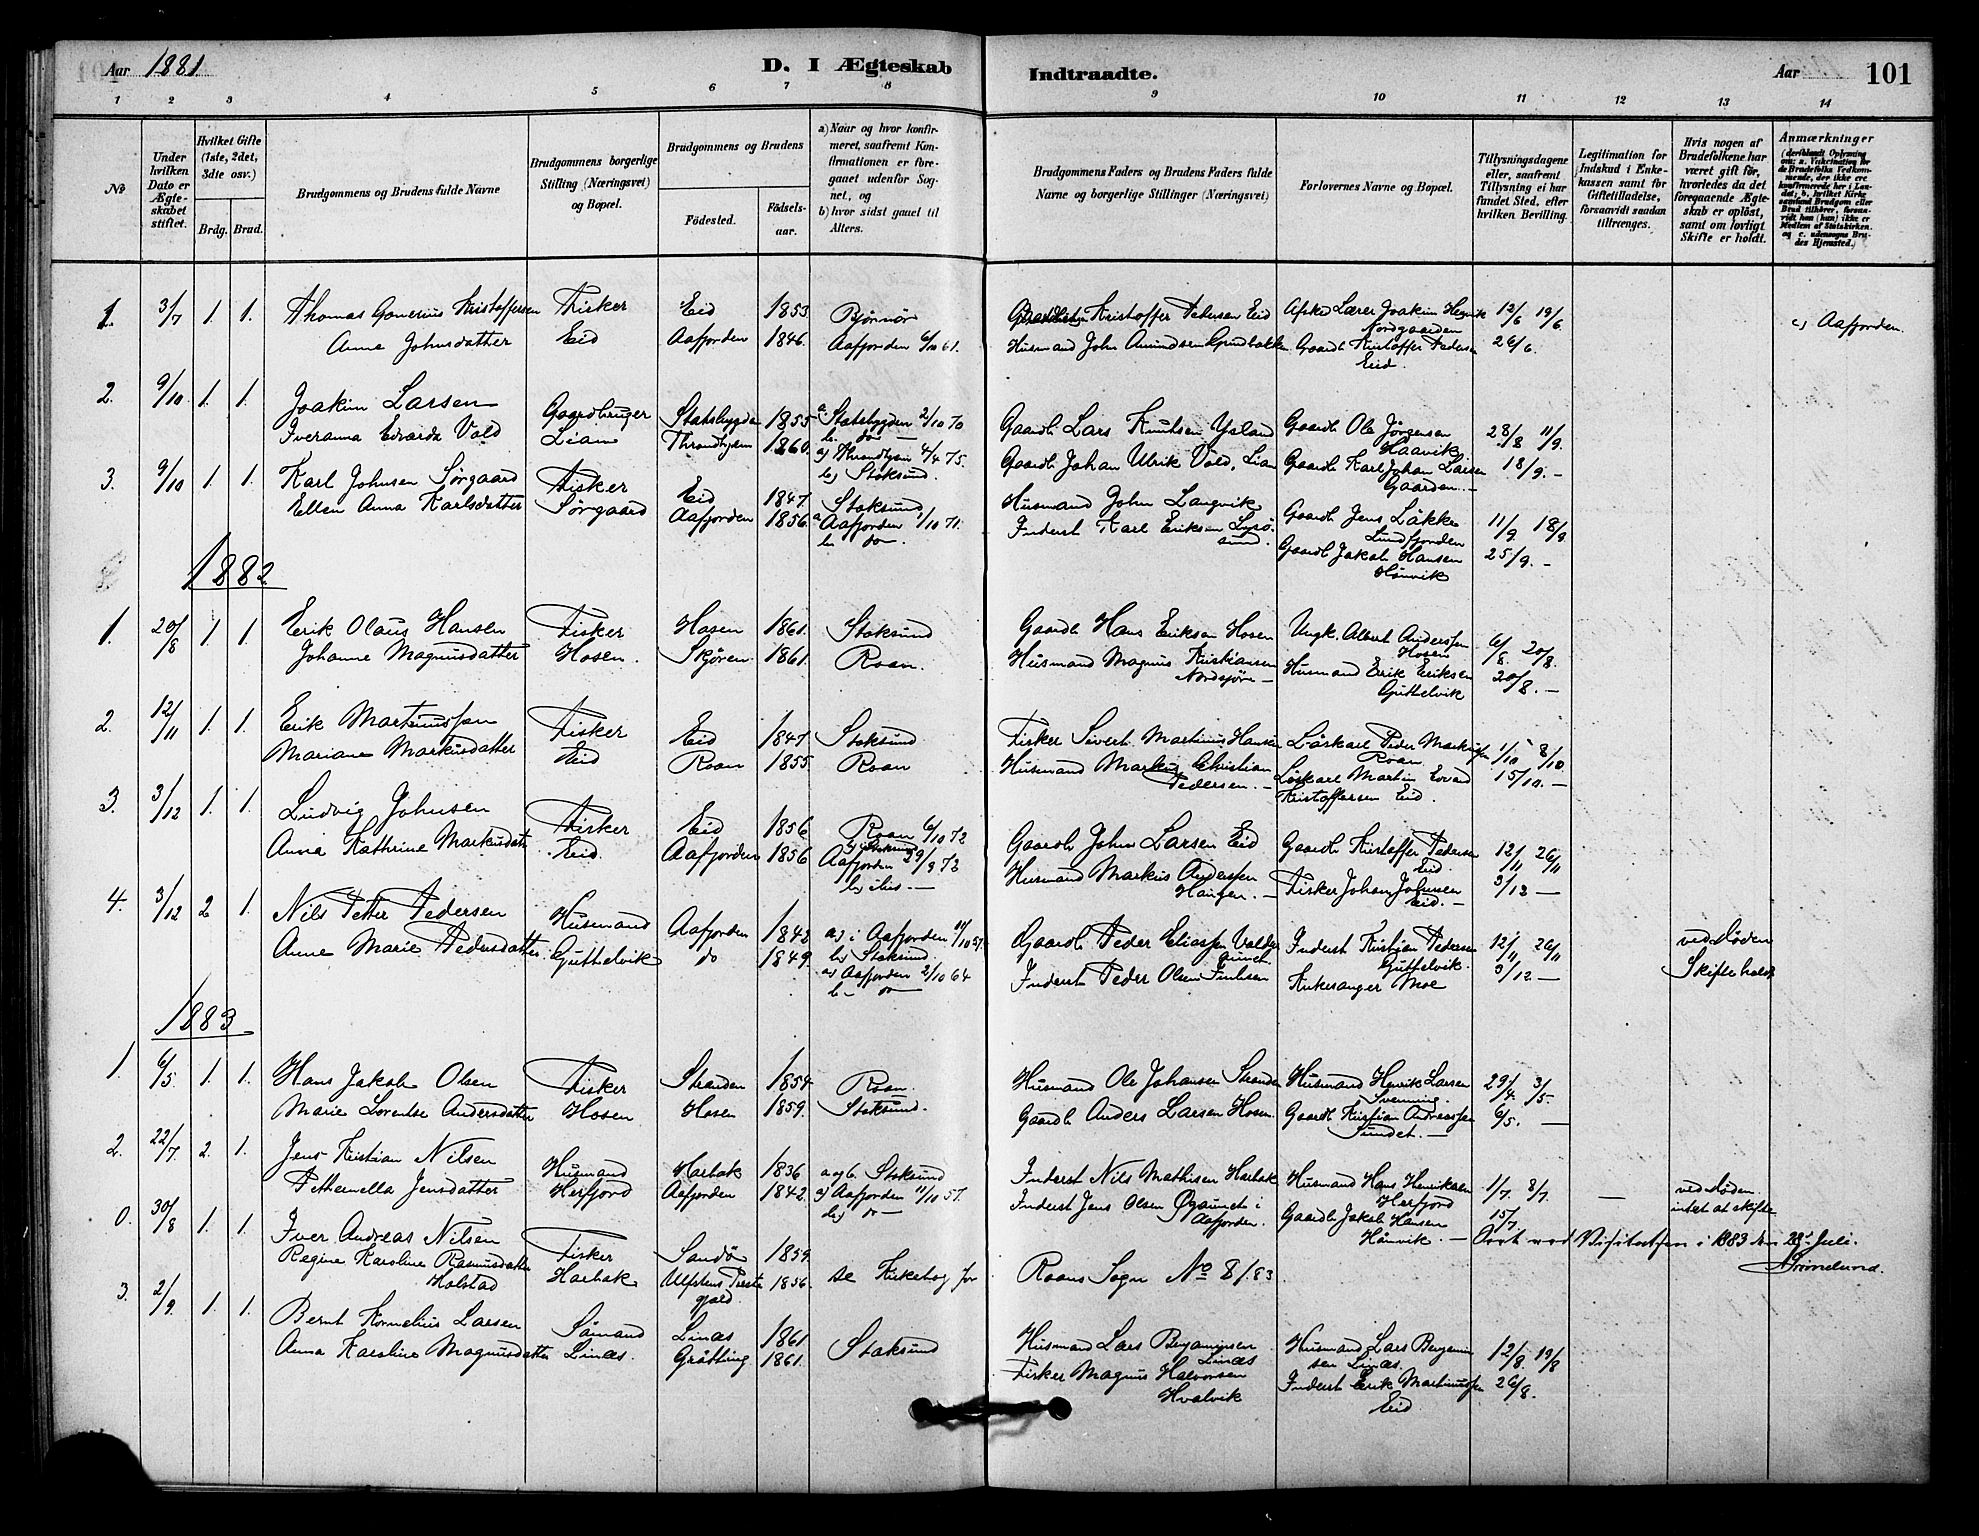 Aar 1881. D. I Ægteskab Indtraadte. Aar 101
1 2 3 4 5 6 7 8 9 10 11 12 13 14
No
Under hvilken Dato er Ægteskabet stiftet.
Hvilket Gifte (1ste, 2det, 3dte osv.)
Brdg. Brud.
Brudgommens og Brudens fulde Navne
Brudgommens borgerlige Stilling (Næringsvei) og Bopæl.
Brudgommens og Brudens
Fødested. Fødsels-aar.
a) Naar og hvor konfirmeret, saafremt Konfirmationen er foregaaet udenfor Sognet, og
b) hvor sidst gaaet til Alters.
Brudgommens Faders og Brudens Faders fulde Navne og borgerlige Stillinger (Næringsvei)
Forlovernes Navne og Bopæl.
Tillysningsdagene eller, saafremt Tillysning ei har fundet Sted, efter hvilken Bevilling.
Legitimation for Indskud i Enkekassen samt for Giftetilladelse, forsaavidt saadan tiltrænges.
Hvis nogen af Brudefolkene har været gift før, hvorledes da det foregaaende Ægteskab er opløst, samt om lovligt Skifte er holdt.
Anmærkninger
1. 3/7 1. 1. Thomas Gomerius Kristoffersen Fisker Eid 1853 Bjørnør Kristoffer Pedersen Eid Lærer Joakim Henrik Nordgaarden 12/6 19/6 c) Aafjorden.
Anne Johnsdatter Eid Aafjorden 1846. Aafjorden 6/10 61. Husmand John Amundsen Gaardb Kristoffer Pedersen Eid. 26/6.
2. 9/10. 1. 1. Joakim Larsen Gaardbruger Statsbygden 1855 a. Statsbygden 2/10 70 b. do — Gaardb Lars Knutsen Ysland Gaardb Ole Jørgensen Haavik 28/8 11/9.
Iveranna Edvarda Vold Lian Throndhjem 1860. a) Throndhjem 4/4 75. b) Stoksund. Gaardb Johan Ulrik Vold, Lian Gaardb Karl Johan Larsen Gaarden. — 18/9. —
3. 9/10 1. 1. Karl Johnsen Sørgaard Fisker Eid 1847. Stoksund Husmand John Langvik Gaardb Jens Løkke Sundfjorden 11/9. 18/9
Ellen Anna Karlsdatter Sørgaard Aafjorden 1856. a Aafjorden 1/10 71. b. do. Inderst Karl Eriksen Lysøsund. Gaardb Jakob Hansen Haarvik 25/9. —
1882
1. 20/8 1. 1. Erik Olaus Hansen Fisker Hosen 1861. Stoksund Gaardb Hans Eriksen Hosen Ungk. Albert Anderssen Hosen 6/8 20/8.
Johanne Magnusdatter Hosen. Skjøren 1861. Roan. Husmand Magnus Kristiansen — Husmand Erik Eriksen Guttelvik 20/8. —
2. 12/11 1. 1. Erik Martinussen Fisker Eid 1847. Stoksund Fisker Sivert Martinus Hansen Løskarl Peder Markussen Roan 1/10 8/10.
Mariane Markusdatter Eid Roan 1855 Roan Husmand Markus Christian Pedersen. — Løskarl Martin Edvard Kristoffersen Eid. 15/10. —
3. 3/12 1. 1. Ludvig Johnsen Fisker Eid 1856 Roan 6/10 72 Gaardb John Larsen Eid Gaardb Kristoffer Pedersen Eid. 12/11 26/11
Anna Kathrine Markusdatt Eid. Aafjorden 1856 Aafjorden 29/9 72 Husmand Markus Anderssen Haugen. — Fisker Johan Johnsen Eid. — 3/12 —
4. 3/12 2 1. Nils Petter Pedersen Husmand Aafjorden 1842 a) i Aafjorden b) Stoksund. Gaardb Peder Eliassen Inderst Kristian Pedersen Guttelvik. 12/11 26/11 ved Døden
Anne Marie Pedersdatter. Guttelvik do 1849. a) Aafjorden 2/10 64 b — do — Inderst Peder Olsen Kirkesanger Moe 3/12 — Skifte holdt
1883
1. 6/5 1. 1. Hans Jakob Olsen Fisker Stranden 1854. Roan. Husmand Ole Johansen Stranden Husmand Henrik Larsen Svenning. 29/4 3/5.
Marie Lorentse Andersdatter Hosen Hosen 1859. Stoksund. Gaardb Anders Larsen Hosen. Gaardb Kristian Andreassen Sundet. — 6/5. —
2. 22/7. 2. 1. Jens Kristian Nilsen Husmand Harbak 1836 a og b. Stoksund Inderst Nils Mathisen Harbak Husmand Hans Henriksen Herfjord 1/7. 8/7. — ved Døden
Petternella Jensdatter Herfjord Aafjorden 1842. a) Aafjorden 11/10 57. b) do — Inderst Jens Olsen i Aafjorden. Gaardb Jakob Hansen Haarvik. — 15/7 intet at skifte
0. 30/8 1. 1. Iver Andreas Nilsen Fisker Sandø 1859. se Kirkebog for Roans Sogn No 8/83
Regine Karoline Rasmusdatter Holstad Harbak Ulfstens Præstegjeld. 1856.
ved Visitatsen i 1883 den 28de Juli.
3. 2/9. 1. 1. Bernt Kornelius Larsen Sømand Linæs 1861 Stoksund Husmand Lars Benjaminsen Linæs Husmand Lars Benjaminsen Linæs. 12/8. 19/8
Anna Karoline Magnusdatter Linæs. Grøtting 1861. Fisker Magnus Halvorsen Hvalvik Inderst Erik Martinussen Eid 26/8.